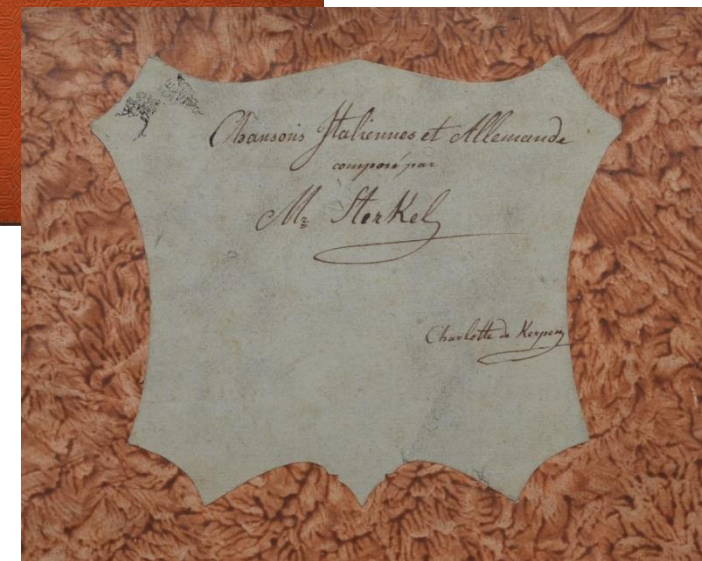 Chansons Italiennes et Allemande
composé par
Mr Sterkel
Charlotte de Kerpen